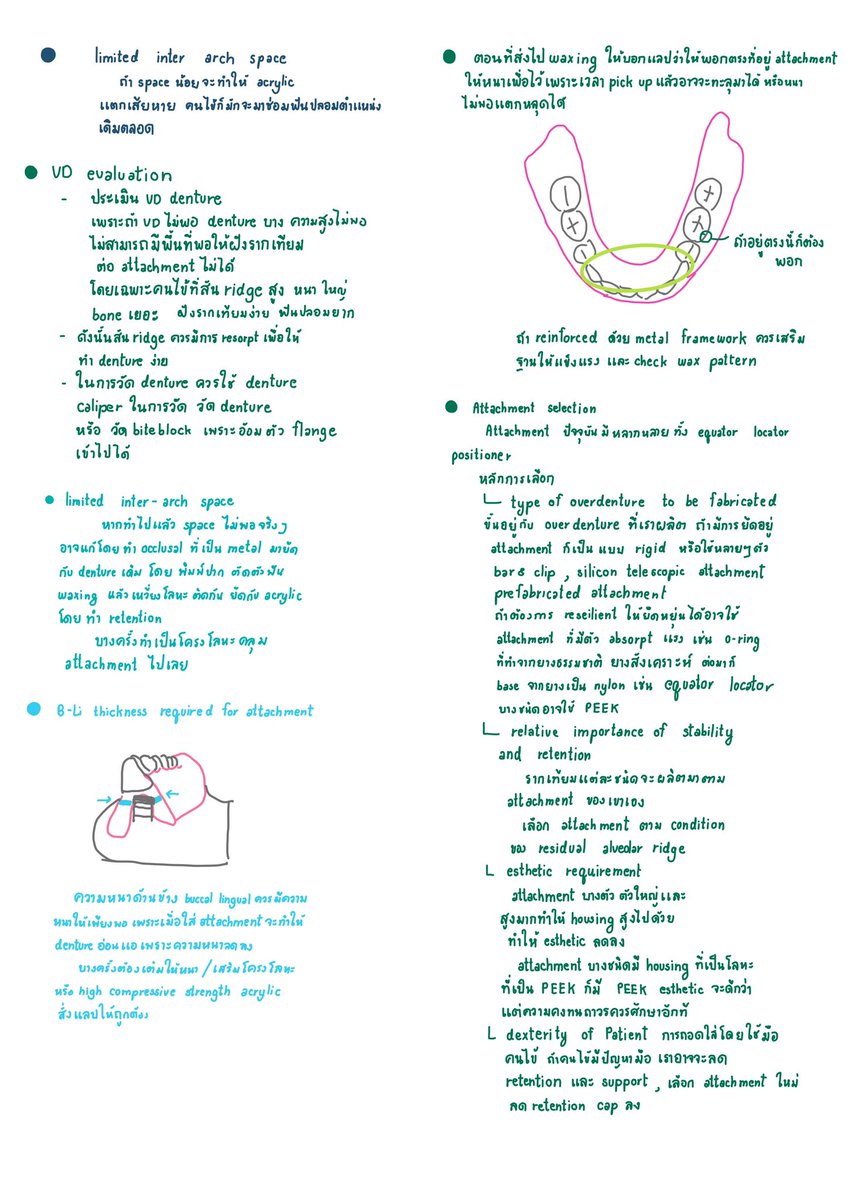 limited inter arch space
ถ้า space น้อยจะทำให้ acrylic
แตกเสียหาย คนไข้ก็มักจะมาซ่อมฟันปลอมตำแหน่ง
เดิมตลอด
VD evaluation
- ประเมิน VD denture
เพราะถ้า VD ไม่พอ denture บาง ความสูงไม่พอ
ไม่สามารถมีพื้นที่พอให้ฝังรากเทียม
ต่อ attachment ไม่ได้
โดยเฉพาะคนไข้ที่สัน ridge สูง หนา ใหญ่
bone เยอะ ฝังรากเทียมง่าย ฟันปลอมยาก
- ดังนั้นสัน ridge ควรมีการ resorpt เพื่อให้
ทำ denture ง่าย
- ในการวัด denture ควรใช้ denture
caliper ในการวัด วัด denture
หรือ วัด biteblock เพราะอ้อมตัว flange
เข้าไปได้
limited inter-arch space
หากทำไปแล้ว space ไม่พอจริงๆ
อาจแก้โดยทำ occlusal ที่เป็น metal มายึด
กับ denture เดิม โดย พิมพ์ปาก ตัดตัวฟัน
waxing แล้วเหวี่ยงโลหะ ติดกัน ยึดกับ acrylic
โดยทำ retention
บางครั้งทำเป็นโครงโลหะคลุม
attachment ไปเลย
B-Li thickness required for attachment
ความหนาด้านข้าง buccal lingual ควรมีความ
หนาให้เพียงพอ เพราะเมื่อใส่ attachment จะทำให้
denture อ่อนแอ เพราะความหนาลดลง
บางครั้งต้องเติมให้หนา / เสริมโครงโลหะ
หรือ high compressive strength acrylic
สั่งแลปให้ถูกต้อง
ตอนที่ส่งไป waxing ให้บอกแลปว่าให้พอกตรงที่อยู่ attachment
ให้หนาเผื่อไว้เพราะเวลา pick up แล้วอาจจะทะลุมาได้ หรือหนา
ไม่พอแตกหลุดได้
ถ้าอยู่ตรงนี้ก็ต้อง
พอก
ถ้า reinforced ด้วย metal framework ควรเสริม
ฐานให้แข็งแรง และ check wax pattern
Attachment selection
Attachment ปัจจุบันมีหลากหลาย ทั้ง equator locator
positioner
หลักการเลือก
type of overdenture to be fabricated
ขึ้นอยู่กับ overdenture ที่เราผลิต ถ้ามีการยึดอยู่
attachment ก็เป็น แบบ rigid หรือใช้หลายๆตัว
bar & clip , silicon telescopic attachment
prefabricated attachment
ถ้าต้องการ reseilient ให้ยืดหยุ่นได้อาจใช้
attachment ที่มีตัว absorpt แรง เช่น o-ring
ที่ทำจากยางธรรมชาติ ยางสังเคราะห์ ต่อมาก็
base จากยางเป็น nylon เช่น equator locator
บางชนิดอาจใช้ PEEK
relative importance of stability
and retention
รากเทียมแต่ละชนิดจะผลิตมาตาม
attachment ของเขาเอง
เลือก attachment ตาม condition
ของ residual alveolar ridge
esthetic requirement
attachment บางตัว ตัวใหญ่และ
สูงมากทำให้ housing สูงไปด้วย
ทำให้ esthetic ลดลง
attachment บางชนิดมี housing ที่เป็นโลหะ
ที่เป็น PEEK ก็มี PEEK esthetic จะดีกว่า
แต่ความคงทนถาวรควรศึกษาอีกที
dexterity of Patient การถอดใส่โดยใช้มือ
คนไข้ ถ้าคนไข้มีปัญหามือ เราอาจจะลด
retention และ support , เลือก attachment ใหม่
ลด retention cap ลง